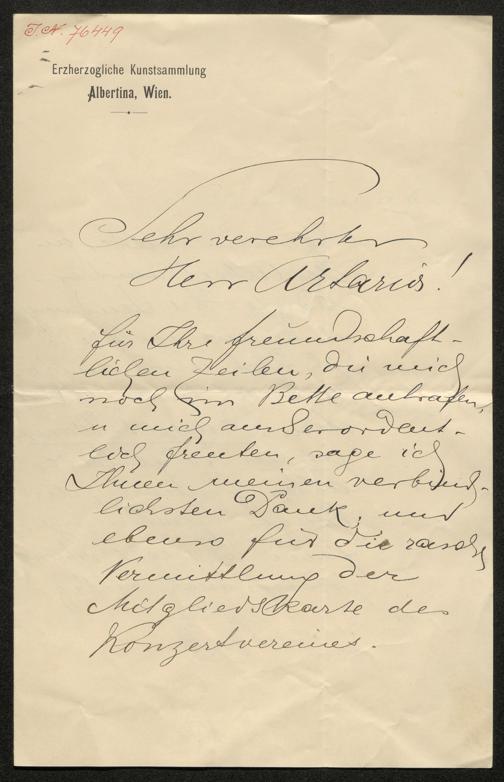 I.N. 76449
Erzherzogliche Kunstsammlung
Albertina, Wien.
Sehr verehrter
Herr Artaria!
für Ihre freundschaft-
lichen Zeilen, die mich
noch im Bette antrafen,
u mich außerordent-
lich freuten, sage ich
Ihnen meinen verbind-
lichsten Dank, und
ebenso für die rasche
Vermittlung der
Mitgliedskarte des
Konzertvereines.